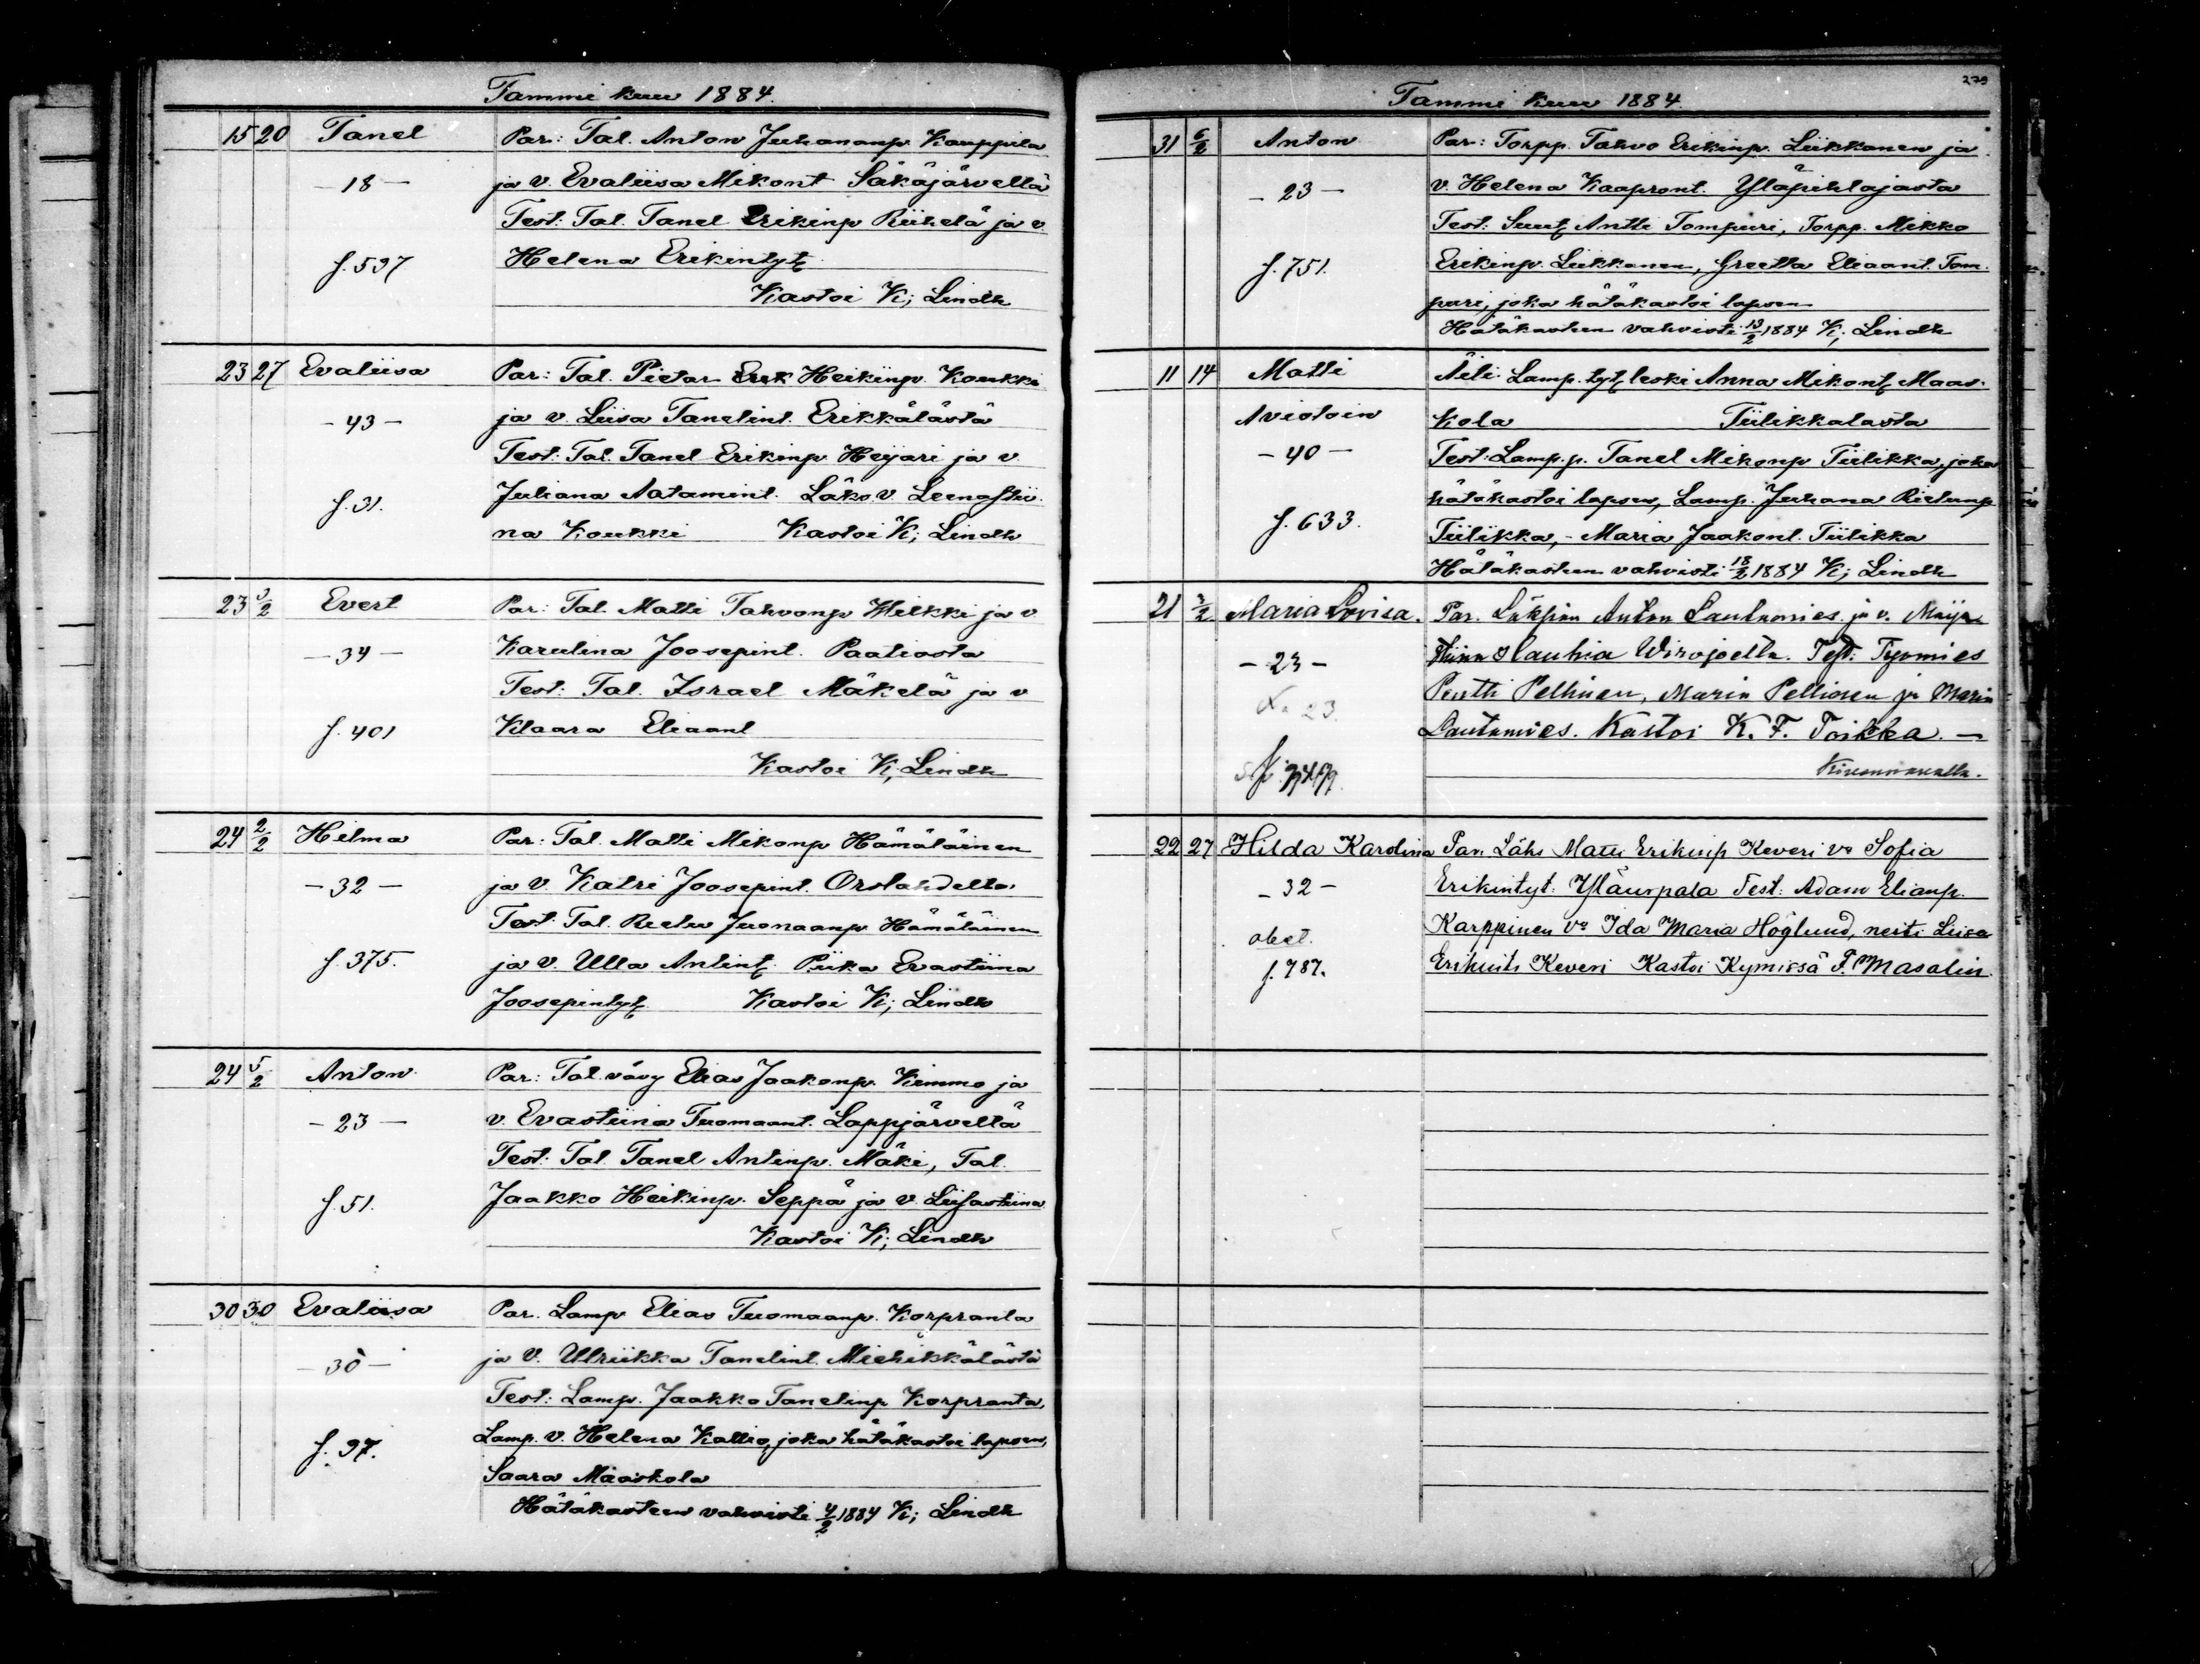 Tammi kuu 1884.
15 20 Tanel Par: Tal. Anton Juhananp. Kauppila
- 18 - ja v. Evaliisa Mikont. Säkäjärveltä
Test: Tal. Tanel Erikinp Riihelä ja v.
f. 597 Helena Erikintyt.
Kastoi K; Lindh
23 27 Evaliisa Par: Tal. Pietar Heikinp. Koukki
- 43 - ja v. Liisa Tanelint. Erikkälästä
Test: Tal. Tanel Erikinp Heijari ja v.
f. 31. Juliana Aatamint. Läks. v. Leenastii-
na Koukki Kastoi K; Lindh
23 3/2 Evert Par: Tal. Matti Tahvonp Hilkki ja v
- 34 - Karulina Joosepint. Paatiosta
Test: Tal. Israel Mäkelä ja v
f. 401 Klaara Eliaant
Kastoi K; Lindh
24 2/2 Hilma Par: Tal. Matti Mikonp Hämäläinen
- 32 - ja v. Katri Joosepint. Orslahdelta
Test: Tal. Juonaanp Hämäläinen
f. 375. ja v. Ulla Antint. Piika Evastiina
Joosepintyt. Kastoi K; Lindh
24 5/2 Anton Par: Tal. vävy Elias Jaakonp. Kimmo ja
- 23 - v. Evastiina Tuomaant. Lappjärveltä
Test: Tal. Tanel Antinp. Mäki, Tal.
f. 51. Jaakko Heikinp. Seppä ja v. Liisastiina
Kastoi K; Lindh
30 30 Evaliisa Par. Lamp Elias Tuomaanp. Korpranta
- 30 - ja v. Ulriikka Tanelint. Miehikkälästä
Test: Lamp. Jaakko Tanelinp Korpranta,
f. 97. Lamp. v. Helena Kallio, joka hätäkastoi lapsen,
Saara Maaskola
Hätäkasteen vahvisti 4/2 1884 K; Lindh
279
Tammi kuu 1884.
31 6/2 Anton Par: Torpp. Tahvo Erikinp. Liikkanen ja
- 23 - v. Helena Kaapront. Yläpihlajasta
Test: Antti Tompuri, Torpp. Mikko
f. 751. Erikinp. Liikkanen, Greetta Eliaant. Tom-
puri, joka hätäkastoi lapsen
Hätäkasteen vahvisti 13/2 1884 K; Lindh
11 14 Matti Äiti: Lamp. tyt. leski Anna Mikont. Maas-
Aviotoin kola Tiilikkalasta
- 40 - Test: Lamp. p. Tanel Mikonp Tiilikka, joka
hätäkastoi lapsen, Lamp. Juhana
f. 633. Tiilikka, - Maria Jaakont. Tiilikka
Hätäkasteen vahvisti 18/2 1884 K; Lindh
21 3/2 Maria Lovisa. Par. Anton Lautamies ja v. Maija
- 23 - Hauhia Wirojoella. Test: Työmies
23. Pentti Pellinen, Maria Pellinen ja Maria
Lautamies. Kastoi K. F. Toikka. -
22 27 Hilda Karolina Par. Läks Matti Erikinp Keveri vo Sofia
- 32 - Erikintyt. Yläurpala Test: Adam Elianp.
obst. Karppinen vo Ida Maria Höglund, neiti Liisa
f. 787. Keveri Kastoi Kymissä F. Masalin